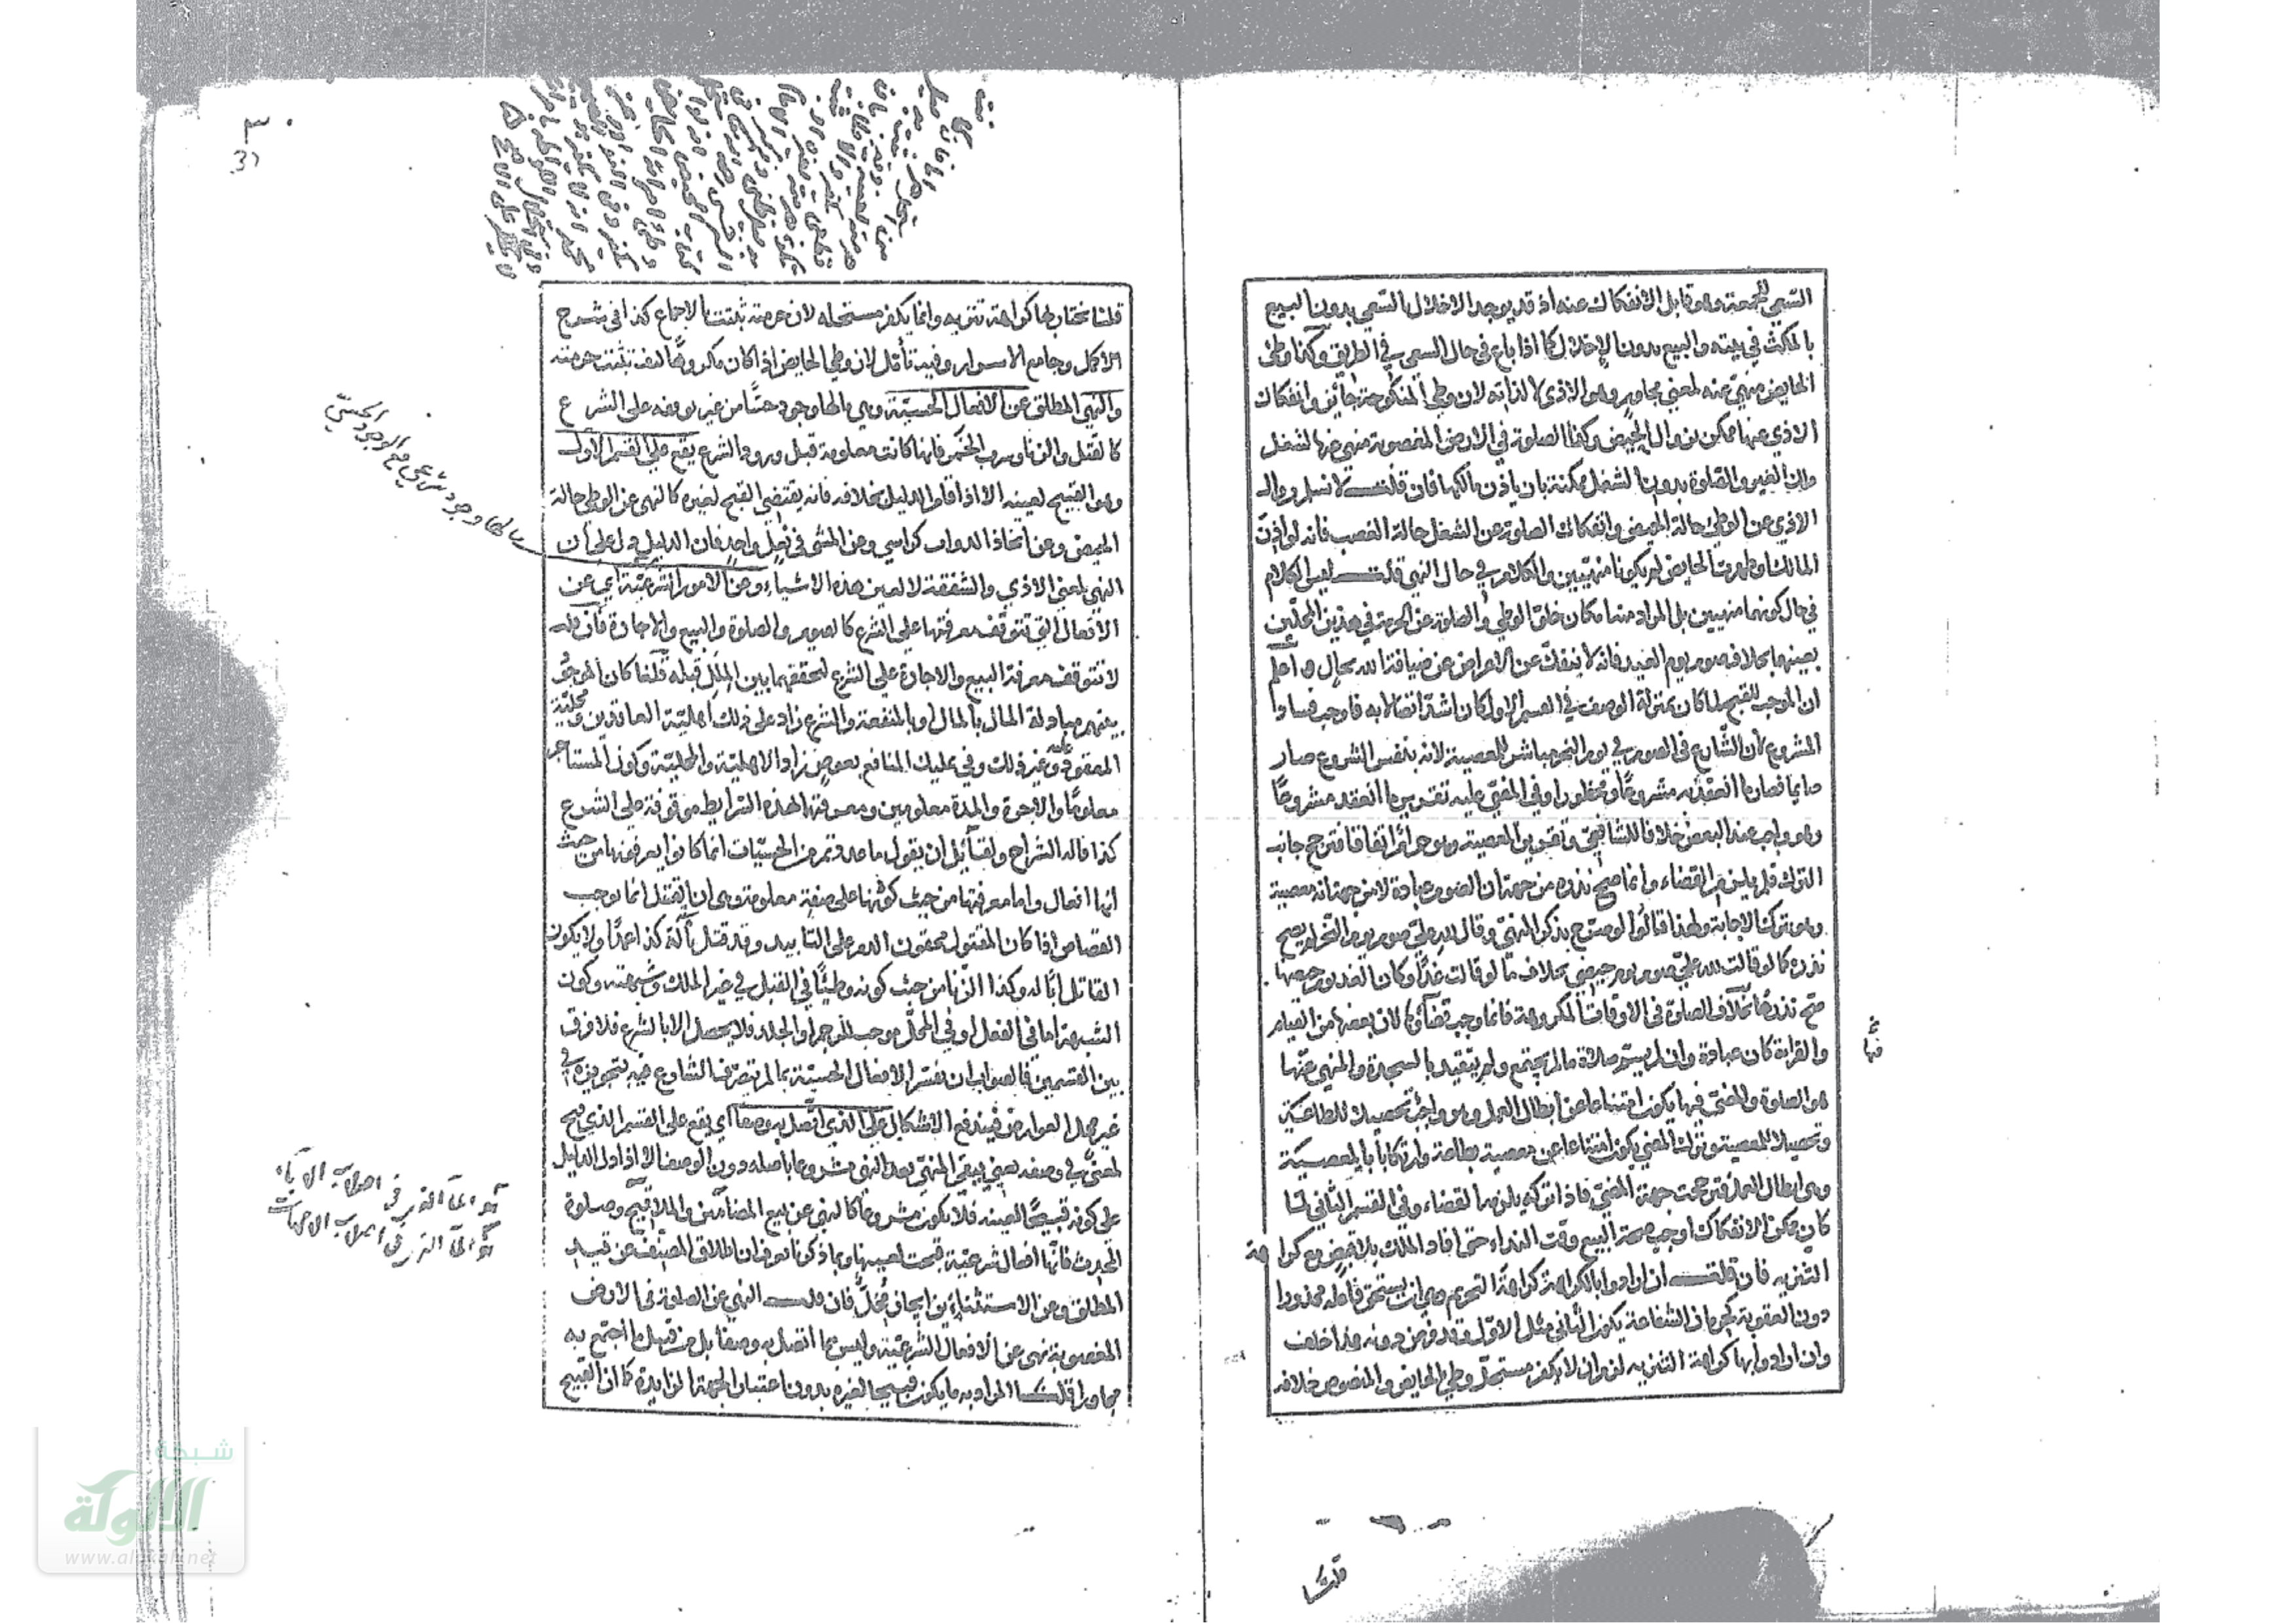 السعي للجمعة وهو قابل الانفكاك عنه اذ قد يوجد الاخلال بالسعي بدون البيع
بالمكث في بيته والبيع بدون الاخلال كما اذا باع في حال السعي في الطريق وكذا وطئ
الحايض منهي عنه لمعنى مجاور وهو الاذى لا لذاته لان وطئ المنكوحة جائز وانفكاك
الاذى عنها ممكن بزوال الحيض وكذا الصلوة في الارض المغصوبة منهي عنها لشغل
ملك الغير والصلوة بدون الشغل ممكنة بان ياذن مالكها فان قلت لا نسلم زوال
الاذى عن الوطئ حالة الحيض وانفكاك الصلوة عن الشغل حالة الغصب فانه لو اذن
المالك وطهرت الحايض لم يكونا منهيين والكلام في حال النهي قلت ليس الكلام
في حال كونهما منهيين بل المراد منه امكان خلو الوطئ والصلوة عن الحرمة في هذين المحلين
بعينهما بخلاف صوم يوم العيد فانه لا ينفك عن الاعراض عن ضيافة الله بحال واعلم
ان الموجب للقبح لما كان بمنزلة الوصف في القسم الاول كان اشد اتصالا به فاوجب فساد
المشروع لان الشارع في الصوم في يوم النحر مباشر للمعصية لانه بنفس الشروع صار
صايما فصار ما انعقد به مشروعا ومحظورا وفي المضي عليه تقرير ما انعقد مشروعا
وهو واجب عند البعض خلافا للشافعي وتقرير المعصية وهو حرام اتفاقا فترجح جانب
الترك فلم يلزم القضاء وانما صح نذره من جهة ان الصوم عبادة لا من جهة انه معصية
وهو ترك الاجابة ولهذا قالوا لو صرح بذكر النهي وقال لله علي صوم يوم النحر لم يصح
نذره كما لو قالت لله علي صوم يوم حيضي بخلاف ما لو قالت غدا وكان الغد يوم حيضها
صح نذرها بخلاف الصلوة في الاوقات المكروهة فانما وجب قضاؤها لان بعضها من القيام
والقراءة كان عبادة وان لم يسم صلاة ما لم تجتمع ولم يتقيد بالسجدة والمنهي عنها
هو الصلوة والمضي فيها يكون امتناعا عن ابطال العمل وهو واجب تحصيلا للطاعة
وتحصيلا للمعصية وترك المضي يكون امتناعا عن معصية بطاعة وارتكابا بالمعصية
وهي ابطال العمل فترجحت جهة المضي فاذا تركه يلزمه القضاء وفي القسم الثاني لما
كان ممكن الانفكاك اوجب صحة البيع وقت النداء حتى افاد الملك بلا قبض مع كراهة
التنزيه فان قلت ان ارادوا بالكراهة كراهة التحريم وهي ان يستحق فاعله محذورا
دون العقوبة كحرمان الشفاعة يكون الثاني مثل الاول وقد فرض دونه هذا خلف
وان ارادوا بها كراهة التنزيه لزم ان لا يكفر مستحل وطئ الحايض والمنصوص خلافه
قلنا
قلنا نختار بها كراهة تنزيه وانما يكفر مستحله لان حرمته ثبتت بالاجماع كذا في شرح
الاكمل وجامع الاسرار وفيه تأمل لان وطئ الحايض اذا كان مكروها كيف تثبت حرمته
والنهي المطلق عن الافعال الحسية وهي ما لها وجود حسا من غير توقفه على الشرع
كالقتل والزنا وشرب الخمر فانها كانت معلومة قبل ورود الشرع يقع على القسم الاول
وهو القبيح لعينه الا اذا قام الدليل بخلافه فانه يقتضي القبح لغيره كالنهي عن الوطئ حالة
الحيض وعن اتخاذ الدواب كراسي وعن المشي في نعل واحد فان الدليل دل على ان
النهي لمعنى الاذى والشفقة لا لعين هذه الاشياء وعن الامور الشرعية اي عن
الافعال التي تتوقف معرفتها على الشرع كالصوم والصلوة والبيع والاجارة فان قلت
لا تتوقف معرفة البيع والاجارة على الشرع لتحققهما بين الملل قبله قلنا كان الموجود
بينهم مبادلة المال بالمال او بالمنفعة والشرع زاد على ذلك اهلية العاقدين ومحلية
المعقود عليه وغير ذلك وفي تمليك المنافع بعوض زاد الاهلية والمحلية وكون المستاجر
معلوما والاجرة والمدة معلومين ومعرفتها بهذه الشرايط موقوفة على الشرع
كذا قاله الشراح ولقائل ان يقول ما عددتم من الحسيات انما كانوا يعرفونها من حيث
انها افعال واما معرفتها من حيث كونها على صفة معلومة وهي ان القتل انما يوجب
القصاص اذا كان المقتول محقون الدم على التابيد وقد قتل بآلة كذا عمدا ولا يكون
القاتل ابا له وكذا الزنا من حيث كونه وطئا في القبل في غير الملك وشبهته وكون
الشبهة اما في الفعل او في المحل موجب للرجم او الجلد فلا يحصل الا بالشرع فلا فرق
بين القسمين فالصواب ان نفسر الافعال الحسية بما لم يتصرف الشارع فيه بتجويزه في
غير محل العوارض فيندفع الاشكال على الذي اتصل به وصفا اي يقع على القسم الذي قبح
لمعنى في وصفه يعني يبقى المنهي بعد النهي مشروعا باصله دون الوصف الا اذا دل الدليل
على كونه قبيحا لعينه فلا يكون مشروعا كالنهي عن بيع المضامين والملاقيح وصلوة
المحدث فانها افعال شرعية قبحت لعينها وبما ذكرنا تعرف ان اطلاق المصنف عن قيد
المطلق وعن الاستثناء ين ايجاز مخل فان قلت النهي عن الصلوة في الارض
المغصوبة نهي عن الافعال الشرعية وليس مما اتصل به وصفا بل من قبيل ما اجتمع به
مجاورا قلنا المراد به ما يكون قبيحا لغيره بدون اعتبار الجهة الزايدة كما ان القبيح
ما لها وجود شرعي مع الوجود الحسي
شبكة
الألوكة
www.alukah.net